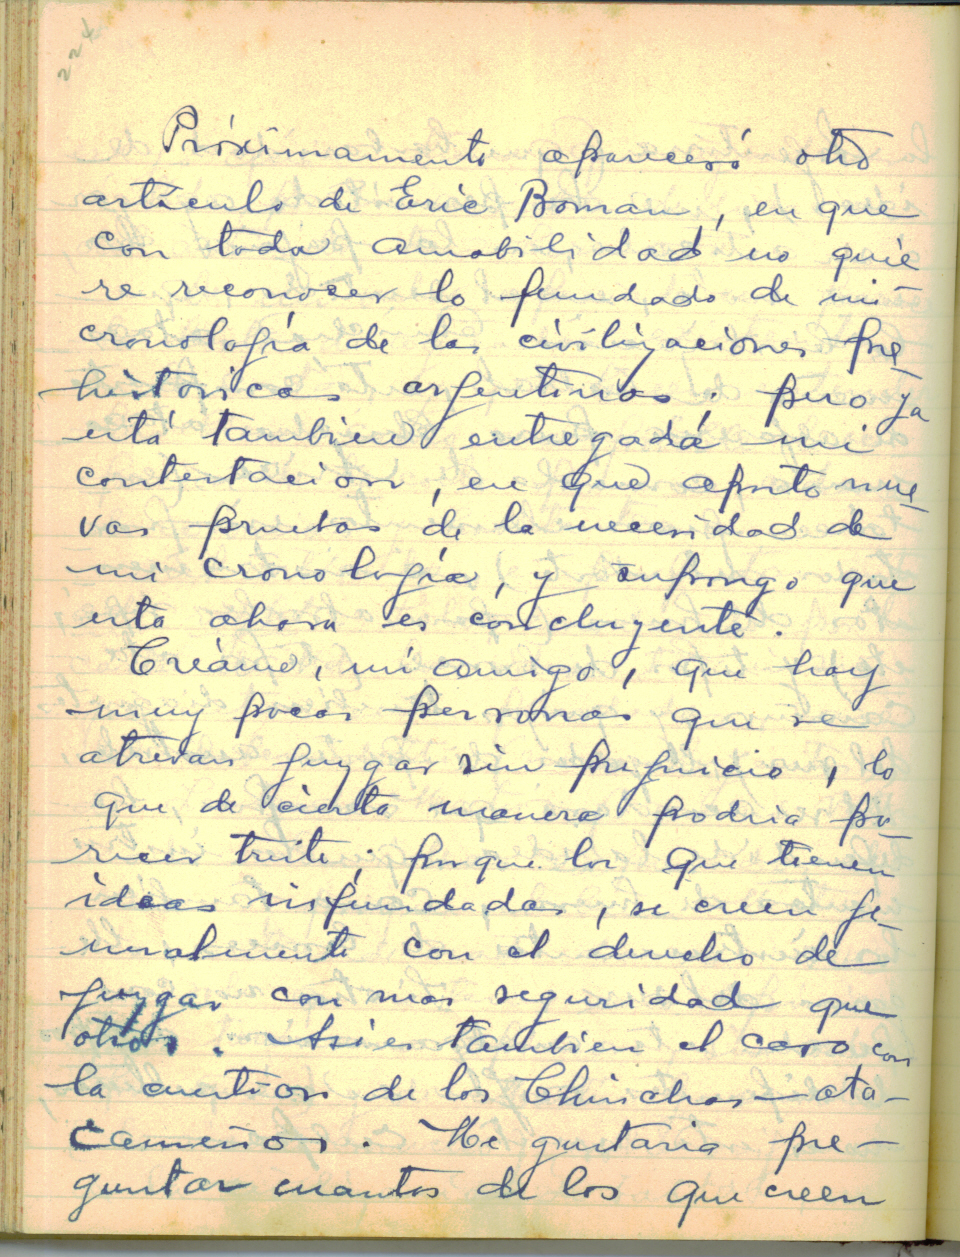 224
Próximamente aparecerá otro
artículo de Eric Boman, en que
con toda amabilidad no quie
re reconocer lo fundado de mi
cronología de las civilizaciones pre-
historicas argentinas. pero ya
está tambien entregada mi
contestacion, en que aporto nue-
vas pruebas de la necesidad de
mi cronología, y supongo que
esta ahora es concluyente.
Créame, mi amigo, que hay
muy pocas personas que se
atrevan juzgar sin prejuicio, lo
que de cierta manera podria pa-
recer triste; porque los que tienen
ideas infundadas, se creen ge-
neralmente con el derecho de
juzgar con mas seguridad que
otros. Asi es tambien el caso con
la cuestion de los Chinchas-ata-
cameños. Me gustaria pre-
guntar cuantos de los que creen